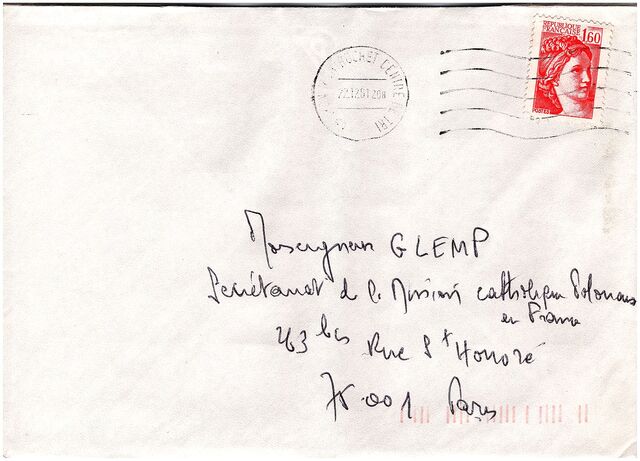 RÉPUBLIQUE
FRANÇAISE 1,60
POSTES
ROCHET CENTRE DE TRI
22.12.81 20H
Monseigneur GLEMP
Secrétariat de la Mission catholique Polonaise
en France
263 bis Rue St Honoré
75001 Paris